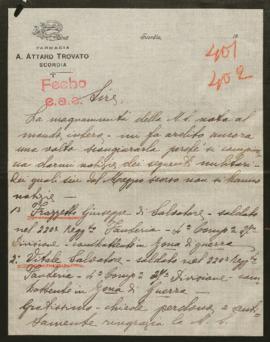 FARMACIA
A. ATTARD TROVATO
SCORDIA
Scordia,
19
401
402
Fecho
e.a.a.
Sire,
La magnanimità della M.S. nota al
mondo intero - mi fa ardito ancora
una volta
darmi notizie dei seguenti militari
dei quali sin dal Maggio scorso non si hanno
notizie -
1°
Giuseppe di Salvatore - soldato
nel 220° Regg.to Fanteria - 4ª Comp.a
Divisione - combattente in zona di guerra -
2° Vitale Salvatore - soldato nel 220° Regg.to
Fanteria - 4ª Comp.a Divisione - com
battente in Zona di Guerra -
chiede perdono e
samente ringrazia la M.S.